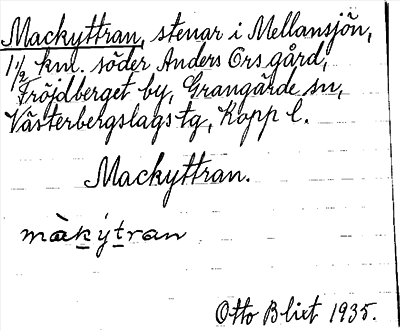 Mackyttran, stenar i Mellansjön,
1 1/2 km. söder Anders Ors gård,
Fröjdberget by, Grangärde sn,
Västerbergslags tg, Kopp l.
Mackyttran.
màk̲ýt̲ran
Otto Blixt 1935.